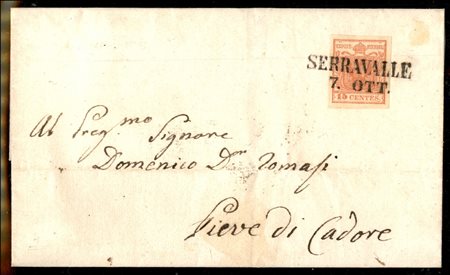 SERRAVALLE
7. OTT.
15 CENTES.
Al Preg.mo Signore
Domenico Dr Tomasi
Pieve di Cadore